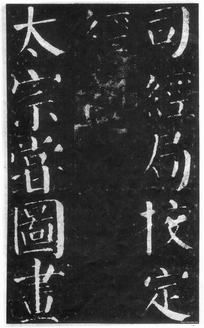 司經局校定
經
太宗當圖畫